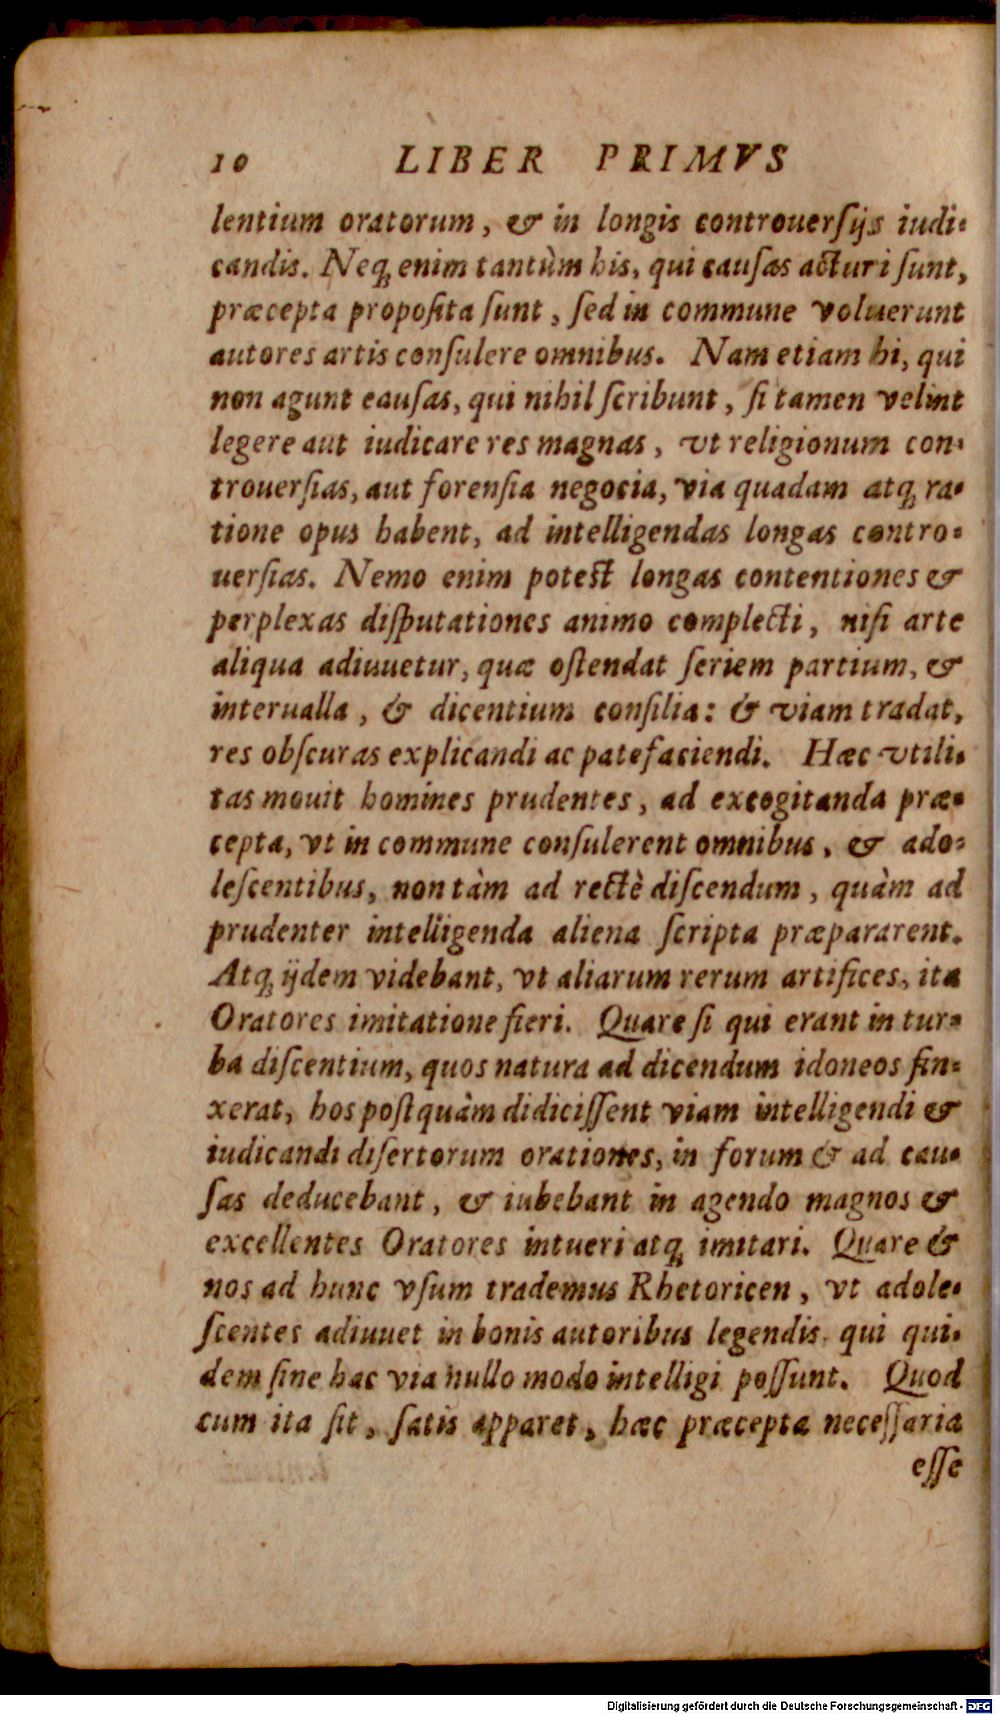 10 LIBER PRIMVS
lentium oratorum, & in longis controuerſijs iudi-
candis. Neq; enim tantùm his, qui cauſas acturi ſunt,
præcepta propoſita ſunt, ſed in commune voluerunt
autores artis conſulere omnibus. Nam etiam hi, qui
non agunt cauſas, qui nihil ſcribunt, ſi tamen velint
legere aut iudicare res magnas, vt religionum con-
trouerſias, aut forenſia negocia, via quadam atq; ra-
tione opus habent, ad intelligendas longas contro-
uerſias. Nemo enim poteſt longas contentiones &
perplexas diſputationes animo complecti, niſi arte
aliqua adiuuetur, quæ oſtendat ſeriem partium, &
interualla, & dicentium conſilia: & viam tradat,
res obſcuras explicandi ac patefaciendi. Hæc vtili-
tas mouit homines prudentes, ad excogitanda præ-
cepta, vt in commune conſulerent omnibus, & ado-
leſcentibus, non tàm ad rectè diſcendum, quàm ad
prudenter intelligenda aliena ſcripta præpararent.
Atq; ijdem videbant, vt aliarum rerum artifices, ita
Oratores imitatione fieri. Quare ſi qui erant in tur-
ba diſcentium, quos natura ad dicendum idoneos fin-
xerat, hos poſtquàm didiciſſent viam intelligendi &
iudicandi diſertorum orationes, in forum & ad cau-
ſas deducebant, & iubebant in agendo magnos &
excellentes Oratores intueri atq; imitari. Quare &
nos ad hunc vſum trademus Rhetoricen, vt adole-
ſcentes adiuuet in bonis autoribus legendis, qui qui-
dem ſine hac via nullo modo intelligi poſſunt. Quod
cum ita ſit, ſatis apparet, hæc præcepta neceſſaria
eſſe
Digitalisierung gefördert durch die Deutsche Forschungsgemeinschaft - DFG